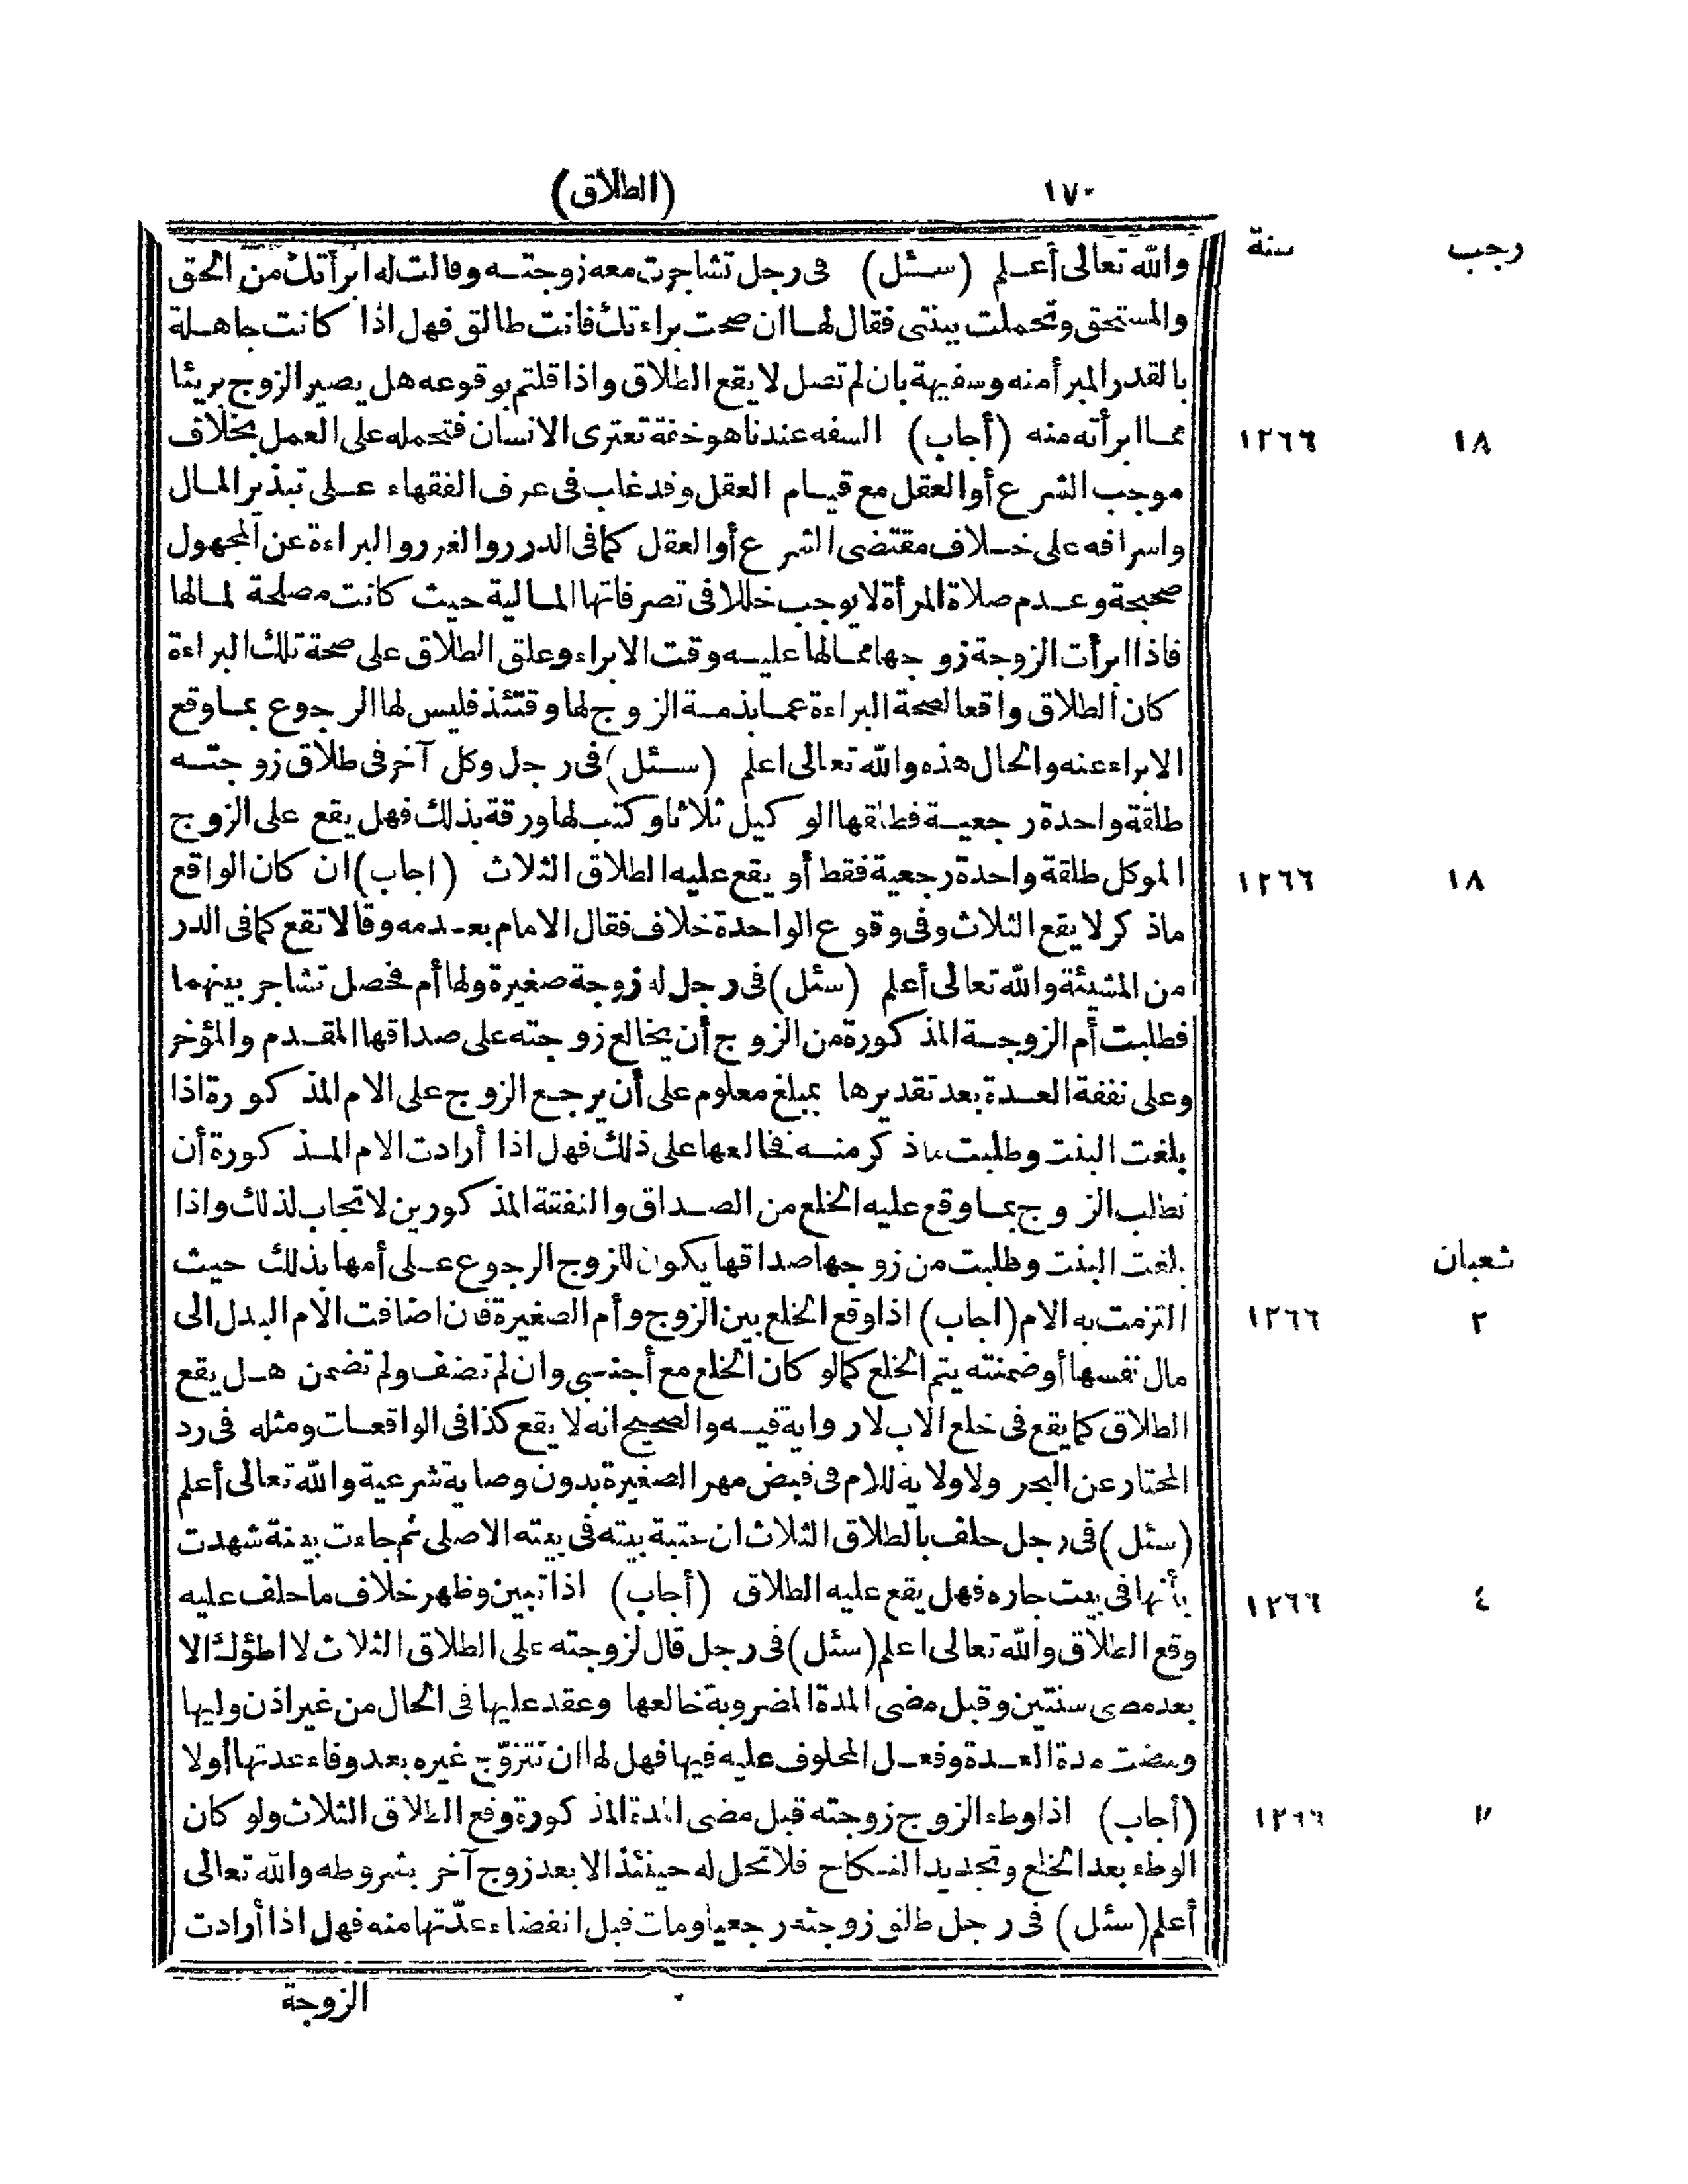 ١٧٠ (الطلاق)
رجب سنة
والله تعالى أعلم (سئل) فى رجل تشاجرت معه زوجته وقالت له ابرأتك من الحق
والمستحق وتحملت ببنتى فقال لها ان صحت براءتك فانت طالق فهل اذا كانت جاهلة
بالقدر المبرأ منه وسفيهة بان لم تصل لا يقع الطلاق واذا قلتم بوقوعه هل يصير الزوج بريئا
١٨ ١٢٦٦ مما ابرأته منه (أجاب) السفه عندنا هو خفة تعترى الانسان فتحمله على العمل بخلاف
موجب الشرع أو العقل مع قيام العقل وقد غلب فى عرف الفقهاء على تبذير المال
واسرافه على خلاف مقتضى الشرع أو العقل كما فى الدرر والغرر والبراءة عن المجهول
صحيحة وعدم صلاة المرأة لا يوجب خللا فى تصرفاتها المالية حيث كانت مصلحة لمالها
فاذا ابرأت الزوجة زوجها مما لها عليه وقت الابراء وعلق الطلاق على صحة تلك البراءة
كان الطلاق واقعا لصحة البراءة عما بذمة الزوج لها وقتئذ فليس لها الرجوع بما وقع
الابراء عنه والحال هذه والله تعالى اعلم (سئل) فى رجل وكل آخر فى طلاق زوجته
طلقة واحدة رجعية فطلقها الوكيل ثلاثا وكتب لها ورقة بذلك فهل يقع على الزوج
١٨ ١٢٦٦ الموكل طلقة واحدة رجعية فقط أو يقع عليه الطلاق الثلاث (اجاب) ان كان الواقع
ماذكر لا يقع الثلاث وفى وقوع الواحدة خلاف فقال الامام بعدمه وقالا تقع كما فى الدر
من المشيئة والله تعالى أعلم (سئل) فى رجل له زوجة صغيرة ولها أم فحصل تشاجر بينهما
فطلبت أم الزوجة المذكورة من الزوج أن يخالع زوجته على صداقها المقدم والمؤخر
وعلى نفقة العدة بعد تقديرها بمبلغ معلوم على أن يرجع الزوج على الام المذكورة اذا
بلغت البنت وطلبت ماذكر منه فخالعها على ذلك فهل اذا أرادت الام المذكورة أن
تطلب الزوج بما وقع عليه الخلع من الصداق والنفقة المذكورين لا تجاب لذلك واذا
شعبان بلغت البنت وطلبت من زوجها صداقها يكون للزوج الرجوع على أمها بذلك حيث
٢ ١٢٦٦ التزمت به الام (اجاب) اذا وقع الخلع بين الزوج وأم الصغيرة فان اضافت الام البدل الى
مال نفسها أو ضمنته يتم الخلع كما لو كان الخلع مع أجنبى وان لم تضف ولم تضمن هل يقع
الطلاق كما يقع فى خلع الاب لا رواية فيه والصحيح انه لا يقع كذا فى الواقعات ومثله فى رد
المحتار عن البحر ولا ولاية للام فى قبض مهر الصغيرة بدون وصاية شرعية والله تعالى أعلم
(سئل) فى رجل حلف بالطلاق الثلاث ان عتبة بيته فى بيته الاصلى ثم جاءت بينة شهدت
٤ ١٢٦٦ بأنها فى بيت جاره فهل يقع عليه الطلاق (أجاب) اذا تبين وظهر خلاف ما حلف عليه
وقع الطلاق والله تعالى اعلم (سئل) فى رجل قال لزوجته على الطلاق الثلاث لا اطؤك الا
بعد مضى سنتين وقبل مضى المدة المضروبة خالعها وعقد عليها فى الحال من غير اذن وليها
ومضت مدة العدة وفعل المحلوف عليه فيها فهل لها ان تتزوّج غيره بعد وفاء عدتها أولا
١٢٦٦ (أجاب) اذا وطء الزوج زوجته قبل مضى المدة المذكورة وقع الطلاق الثلاث ولو كان
الوطء بعد الخلع وتجديد النكاح فلا تحل له حينئذ الا بعد زوج آخر بشروطه والله تعالى
أعلم (سئل) فى رجل طلق زوجته رجعيا ومات قبل انقضاء عدّتها منه فهل اذا أرادت
الزوجة